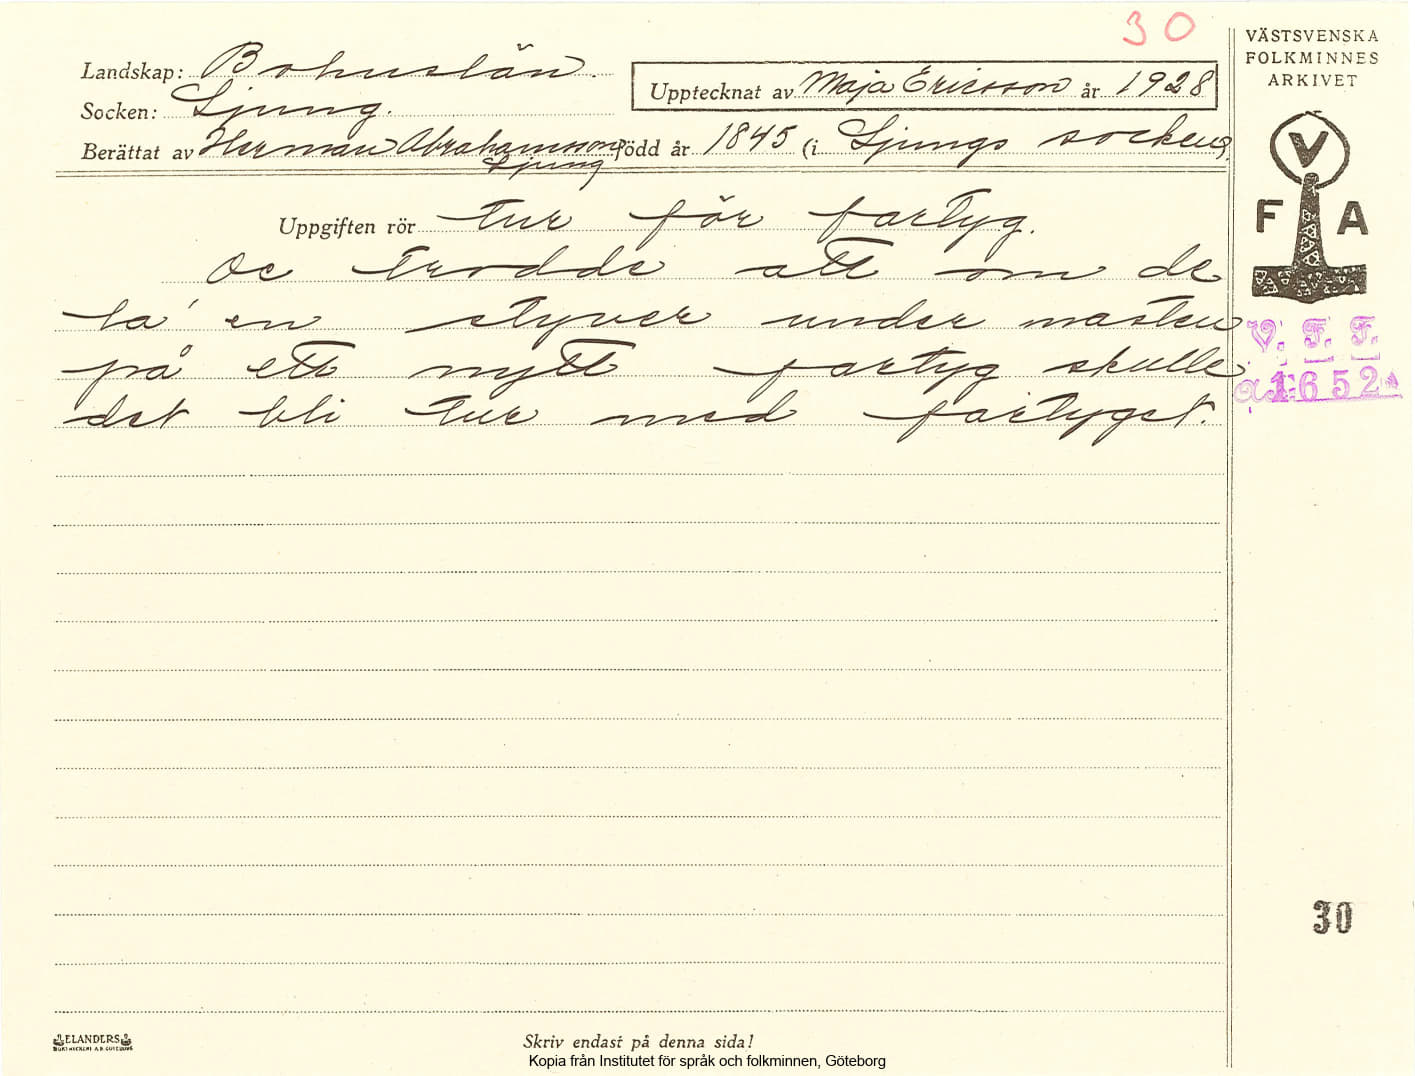 30
VÄSTSVENSKA
FOLKMINNES
ARKIVET
Landskap: Bohuslän.
Upptecknat av Maja Ericsson år 1928
Socken: Ljung.
Berättat av Herman Abrahamsson född år 1845 (i Ljungs socken).
Ljung
V
F A
Uppgiften rör tur för fartyg.
De trodde att om de
la' en styver under masten
på ett nytt fartyg skulle
det bli tur med fartyget.
V. F. F.
1652
30
ELANDERS
Skriv endast på denna sida!
Kopia från Institutet för språk och folkminnen, Göteborg